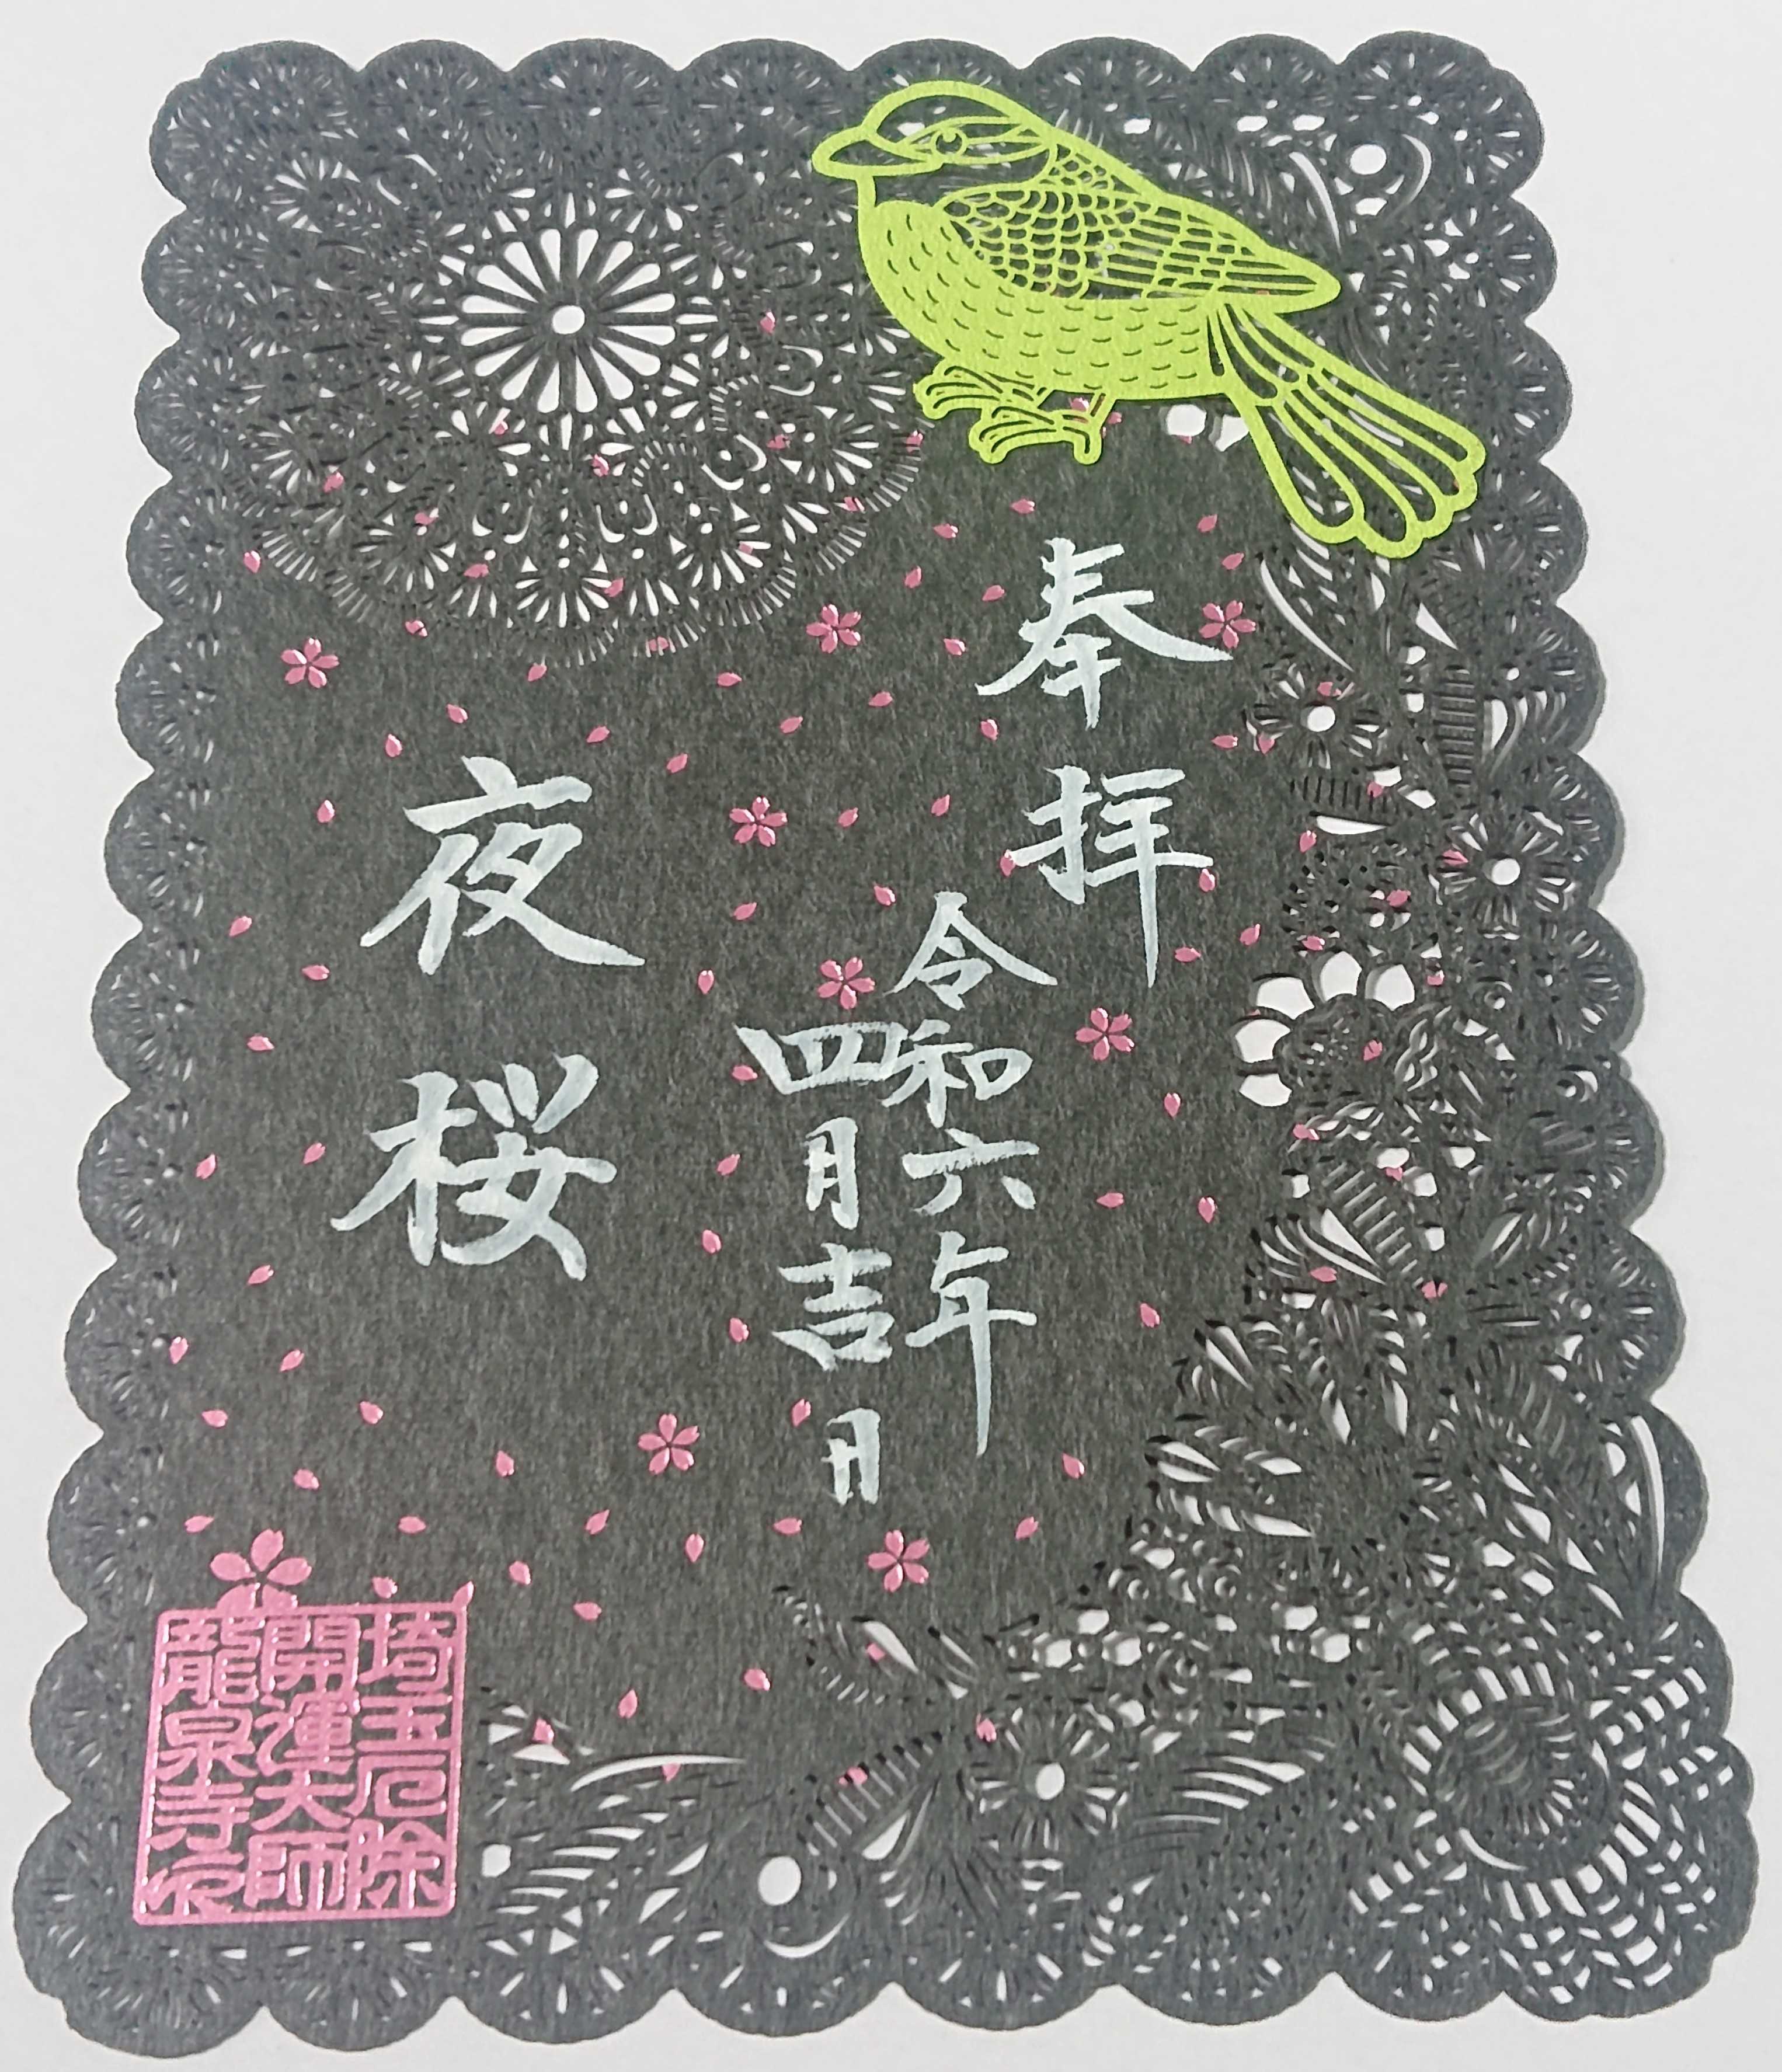 奉拝
令和六年
四月吉日
夜桜
埼玉厄除
開運大師
龍泉寺印